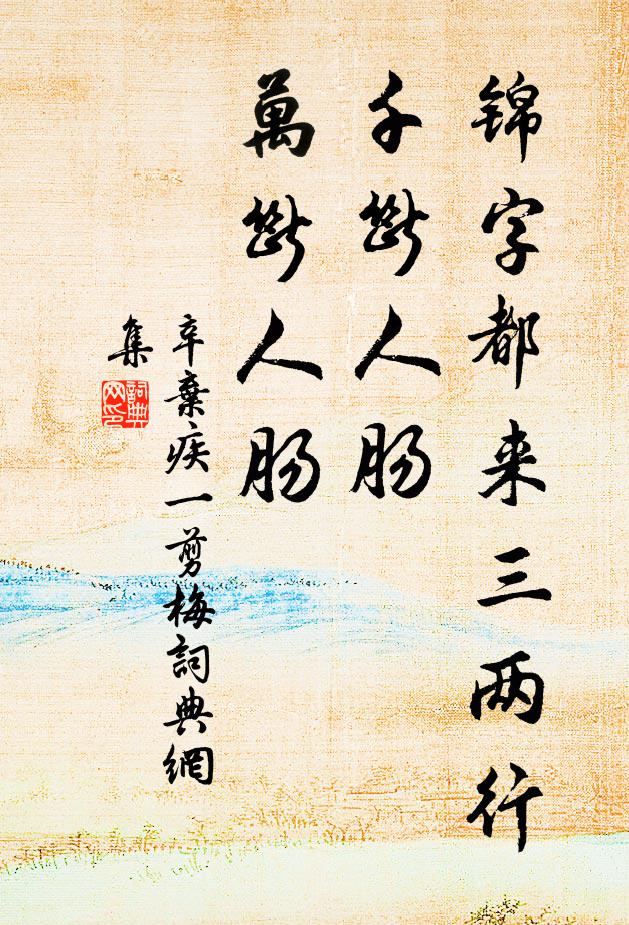 锦字都来三两行
千断人肠
萬断人肠
辛棄疾一剪梅詞典網
集
詞典
网印